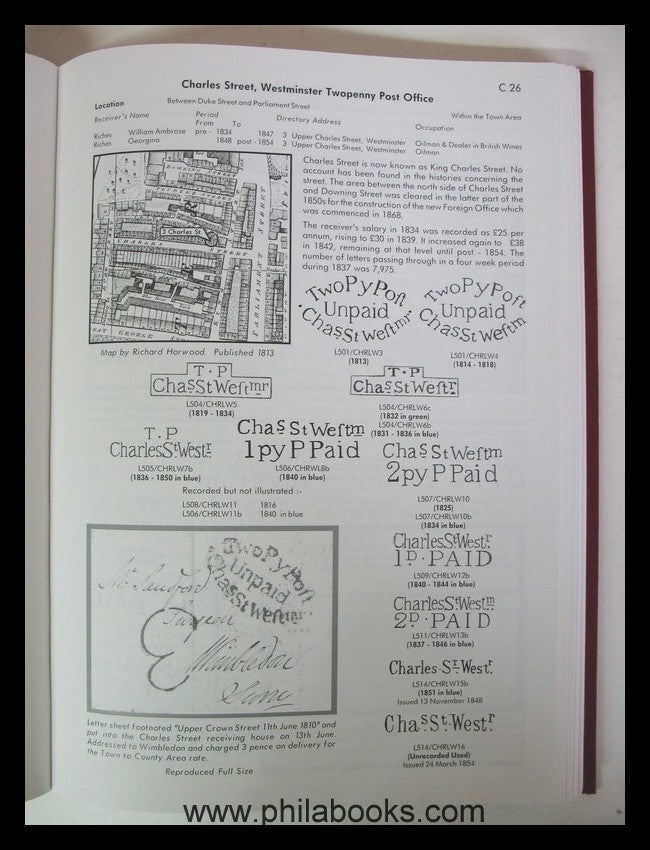 Charles Street, Westminster Twopenny Post Office
C 26
Location
Between Duke Street and Parliament Street
Within the Town Area
Receiver's Name
Period
From To
Directory Address
Occupation
Riches William Ambrose pre - 1834 1847 3 Upper Charles Street, Westminster Oilman & Dealer in British Wines
Riches Georgina 1848 post - 1854 3 Upper Charles Street, Westminster Oilman
Charles Street is now known as King Charles Street. No
account has been found in the histories concerning the
street. The area between the north side of Charles Street
and Downing Street was cleared in the latter part of the
1850s for the construction of the new Foreign Office which
was commenced in 1868.
The receiver's salary in 1834 was recorded as £25 per
annum, rising to £30 in 1839. It increased again to £38
in 1842, remaining at that level until post - 1854. The
number of letters passing through in a four week period
during 1837 was 7,975.
DOWNING STREET
3 Charles St.
CHARLES STREET
PARLIAMENT STREET
GAT GEORGE ST
Map by Richard Horwood. Published 1813
TwoPyPost
Unpaid
ChasStWestmr
L501/CHRLW3
(1813)
TwoPyPost
Unpaid
ChasStWestm
L501/CHRLW4
(1814 - 1818)
T·P
ChasStWestmr
L504/CHRLW5
(1819 - 1834)
T·P
ChasStWestr
L504/CHRLW6c
(1832 in green)
L504/CHRLW6b
(1831 - 1836 in blue)
T.P
CharlesStWestr
L505/CHRLW7b
(1836 - 1850 in blue)
ChasStWestm
1py P Paid
L506/CHRWL8b
(1840 in blue)
ChasStWestm
2py P Paid
L507/CHRLW10
(1825)
L507/CHRLW10b
(1834 in blue)
Recorded but not illustrated :-
L508/CHRLW11 1816
L506/CHRLW11b 1840 in blue
CharlesStWestr.
1D·PAID
L509/CHRLW12b
(1840 - 1844 in blue)
CharlesStWestm
2D·PAID
L511/CHRLW13b
(1837 - 1846 in blue)
Charles·St.Westr.
L514/CHRLW15b
(1851 in blue)
Issued 13 November 1848
Chas St.Westr
L514/CHRLW16
(Unrecorded Used)
Issued 24 March 1854
TwoPyPost
Unpaid
ChasStWestmr
Mr Sandford
Surgeon
Wimbledon
Surry
Letter sheet footnoted "Upper Crown Street 11th June 1810" and
put into the Charles Street receiving house on 13th June.
Addressed to Wimbledon and charged 3 pence on delivery for
the Town to County Area rate.
Reproduced Full Size
www.philabooks.com